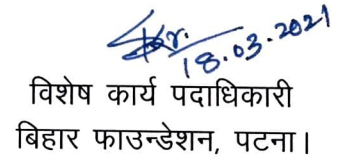 18.03.2021
विशेष कार्य पदाधिकारी
बिहार फाउन्डेशन, पटना।